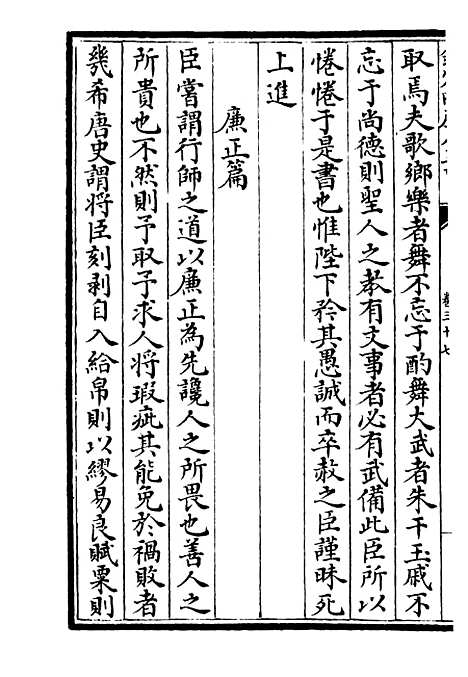 取焉夫歌鄉樂者舞不忘于酌舞大武者朱干玉戚不
忘于尚德則聖人之教有文事者必有武備此臣所以
惓惓于是書也惟陛下矜其愚誠而卒赦之臣謹昧死
上進
廉正篇
臣嘗謂行師之道以廉正為先讒人之所畏也善人之
所貴也不然則予取予求人將瑕疵其能免於禍敗者
幾希唐史謂將臣刻剥自入給帛則以繆易良賦粟則
卷三十七